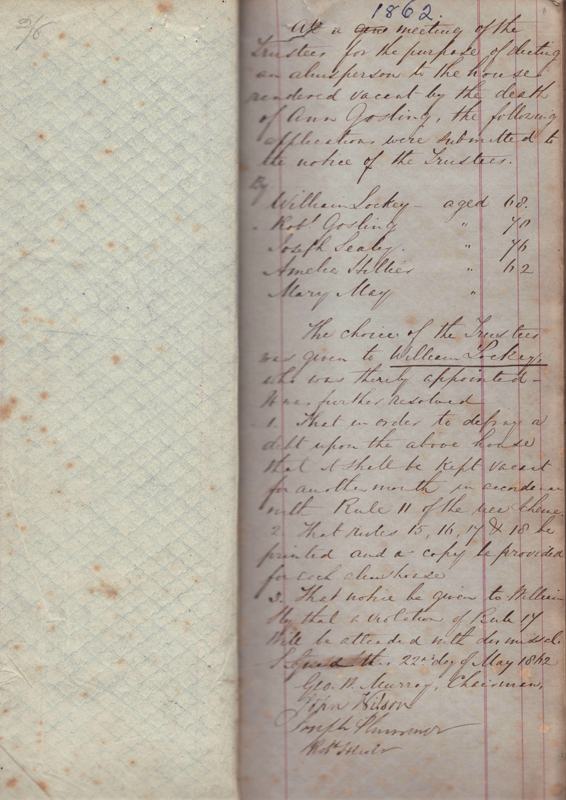 2/6
1862
At a meeting of the
Trustees for the purpose of electing
an almsperson to the house
rendered vacant by the death
of Ann Gosling, the following
applications were submitted to
the notice of the Trustees.
By
William Lockey - aged 68.
Robt Gosling " 78
Joseph Sealey. " 76
Amelia Hillier " 62
Mary May "
The choice of the Trustees
was given to William Lockey,
who was thereby appointed -
It was further resolved
1. That in order to defray a
debt upon the above house
that it shall be kept vacant
for another month in accordance
with Rule 11 of the new scheme.
2. That Rules 15, 16, 17 & 18 be
printed and a copy be provided
for each almshouse
3. That notice be given to William
that a violation of Rule 17
will be attended with dismissal.
Signed this 22nd day of May 1862
Geo. W. Murray, Chairman,
John Wilson
Joseph Plummer
Robt